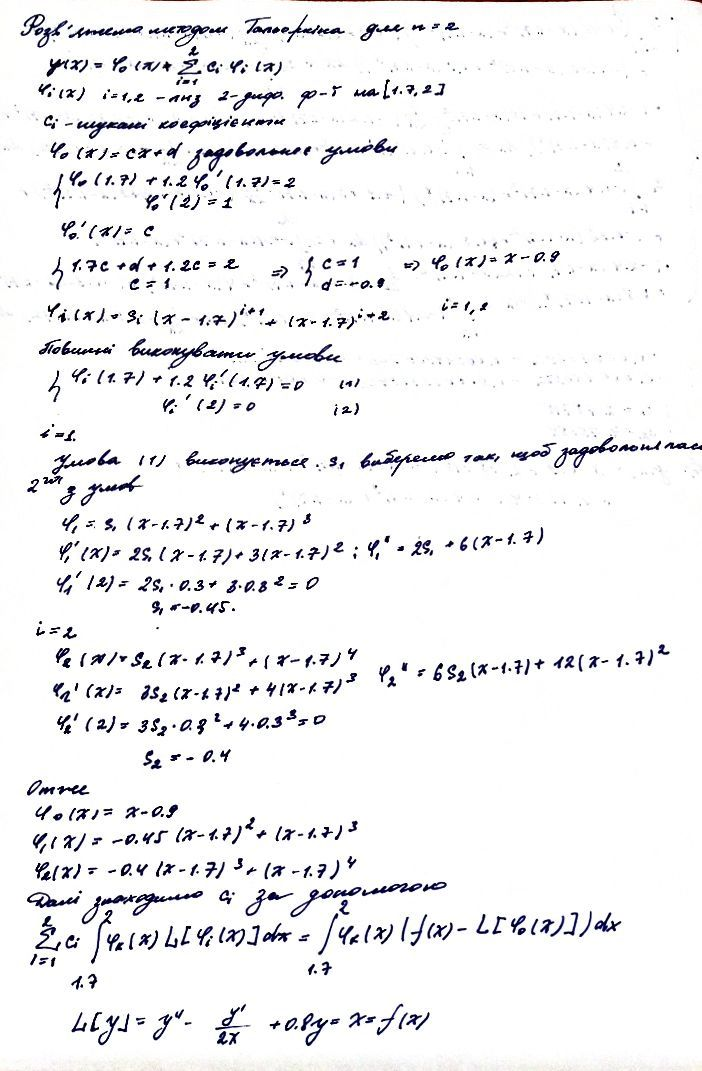 Розв'яжемо методом Гальоркіна для n = 2
y(x) = φ₀(x) + Σ_{i=1}^{2} cᵢ φᵢ(x)
φᵢ(x) i=1,2 – лнз 2-диф. ф-ї на [1.7, 2]
cᵢ - шукані коефіцієнти
φ₀(x) = cx+d задовольняє умови
{ φ₀(1.7) + 1.2 φ₀'(1.7) = 2
φ₀'(2) = 1
φ₀'(x) = c
{ 1.7c + d + 1.2c = 2 => { c = 1 => φ₀(x) = x - 0.9
c = 1 d = -0.9
φᵢ(x) = sᵢ (x - 1.7)^{i+1} + (x-1.7)^{i+2} i=1,2
Повинні виконувати умови
{ φᵢ(1.7) + 1.2 φᵢ'(1.7) = 0 (1)
φᵢ'(2) = 0 (2)
i=1.
Умова (1) виконується. s₁ виберемо так, щоб задовольняла
2 з умов
φ₁ = s₁ (x-1.7)² + (x-1.7)³
φ₁'(x) = 2s₁(x-1.7) + 3(x-1.7)² ; φ₁'' = 2s₁ + 6(x-1.7)
φ₁'(2) = 2s₁·0.3 + 3·0.3² = 0
s₁ = -0.45.
i = 2
φ₂(x) = s₂(x-1.7)³ + (x-1.7)⁴
φ₂'(x) = 3s₂(x-1.7)² + 4(x-1.7)³ φ₂'' = 6s₂(x-1.7) + 12(x-1.7)²
φ₂'(2) = 3s₂·0.3² + 4·0.3³ = 0
s₂ = - 0.4
Отже
φ₀(x) = x-0.9
φ₁(x) = -0.45 (x-1.7)² + (x-1.7)³
φ₂(x) = -0.4 (x-1.7)³ + (x-1.7)⁴
Далі знаходимо cᵢ за допомогою
Σ_{i=1}^{2} cᵢ ∫_{1.7}^{2} φₖ(x) L[φᵢ(x)]dx = ∫_{1.7}^{2} φₖ(x) (f(x) - L[φ₀(x)])dx
L[y] = y'' - y'/2x + 0.8y = x = f(x)